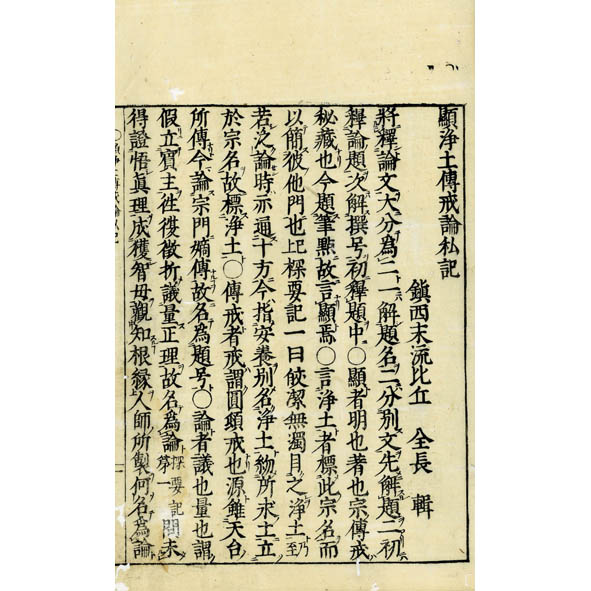 顯淨土傳戒論私記
鎭西末流比丘 全長 輯
將釋論文大分為二一解題名二分別文先解題二初
釋論題次解撰号初釋題中〇顯者明也著也宗傳戒
秘藏也今題筆點故言顯焉〇言淨土者標此宗名而
以簡彼他門也記探要記一曰皎潔無濁目之淨土乃至
若泛論時亦通十方今指安養別名淨土物所求土立
於宗名故標淨土〇傳戒者戒謂圓頓戒也源雖天台
所傳今論宗門嫡傳故名為題号〇論者議也量也謂
假立賓主徃復徴折議量正理故名為論探要記第一問未
得證悟眞理成獲智毋觀知根縁人師所製何名為論